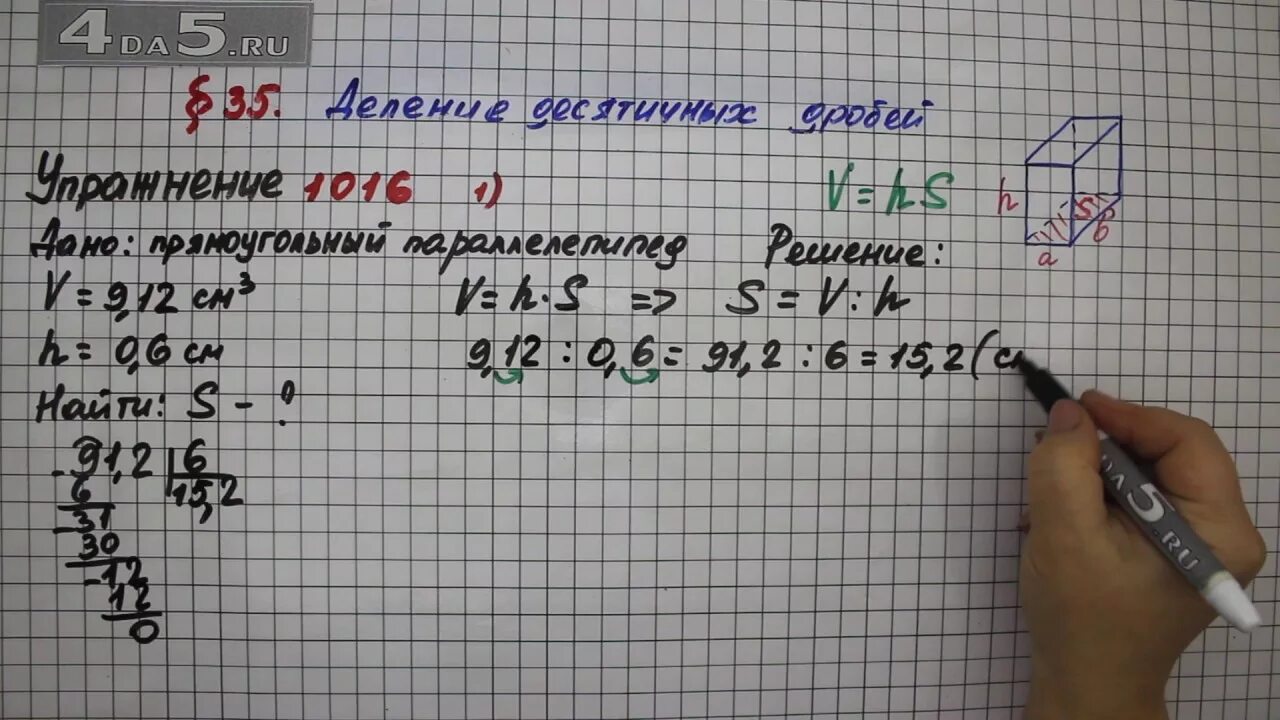 4DA5.RU
§ 35. Деление десятичных дробей
Упражнение 1016 1)
Дано: прямоугольный параллелепипед
V = 9,12 см³
h = 0,6 см
Найти: S - ?
91,2 | 6
- 6 15,2
- 31
30
- 12
12
0
V = h S
Решение:
V = h · S => S = V : h
9,12 : 0,6 = 91,2 : 6 = 15,2 (см
h
S
a
b
DA5.RU